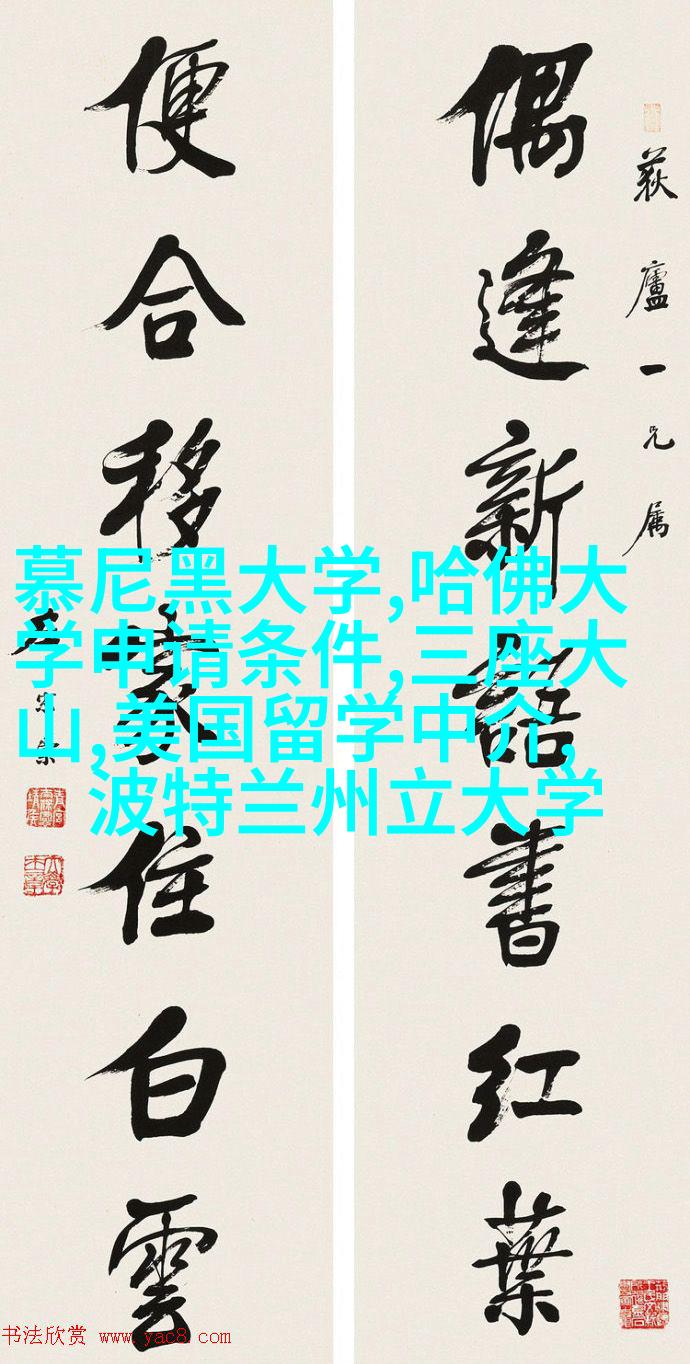 荻廬一兄属
偶逢新語書紅葉
便合移家住白雲
慕尼黑大学,哈佛大
学申请条件,三座大
山,美国留学中介,
波特兰州立大学
书法欣赏 www.yac8.com